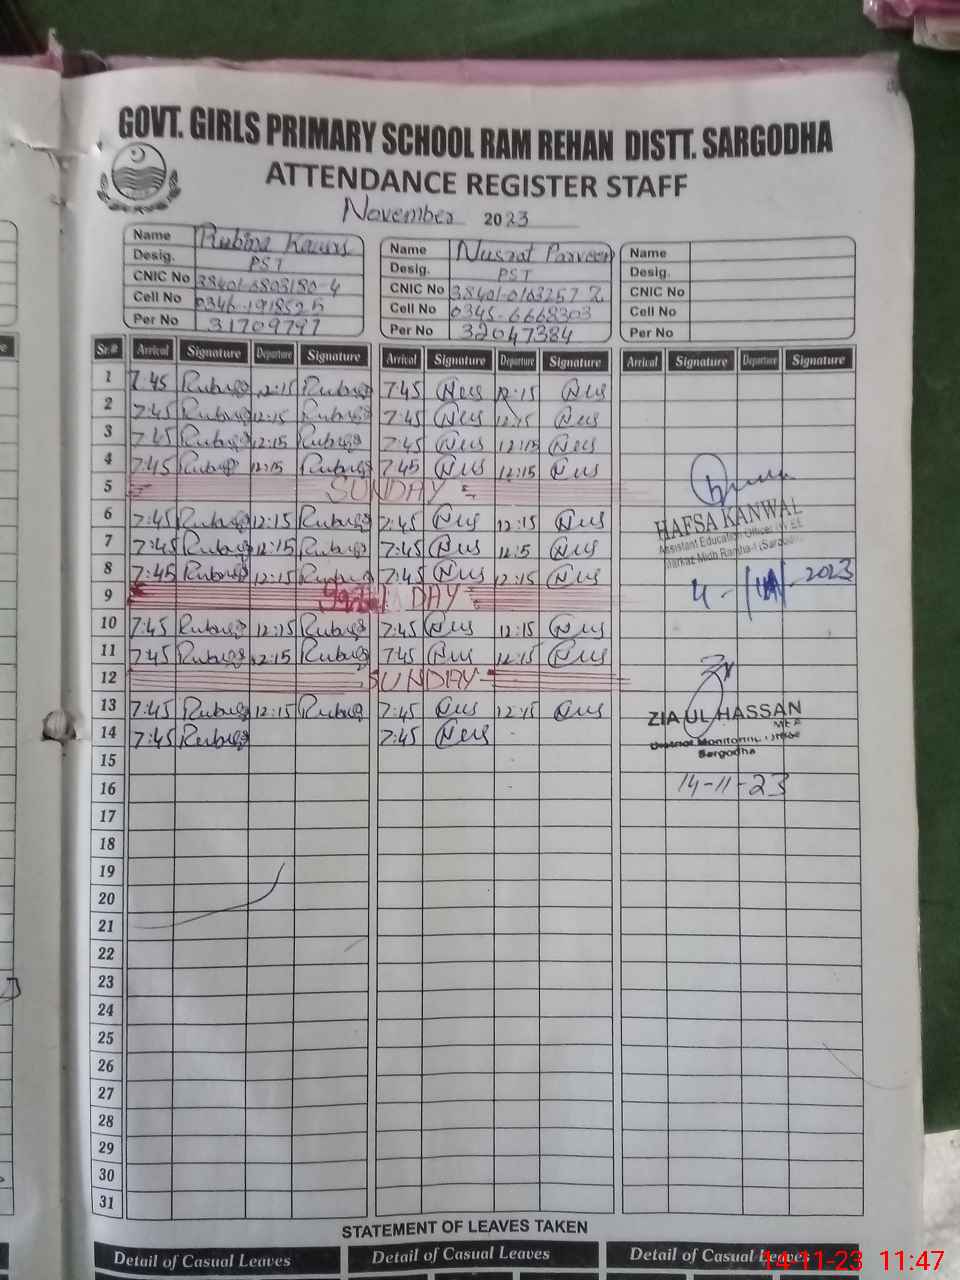 GOVT. GIRLS PRIMARY SCHOOL RAM REHAN DISTT. SARGODHA
ATTENDANCE REGISTER STAFF
November 2023
Name Rubina Kausar
Desig. PST
CNIC No
Cell No 0346-1918525
Per No 31709797
Name Nusrat Parveen
Desig. PST
CNIC No 38401-0103257-2
Cell No 0345-6668303
Per No 32047384
Name
Desig.
CNIC No
Cell No
Per No
Sr.# Arrival Signature Departure Signature Arrival Signature Departure Signature Arrival Signature Departure Signature
1 7:45 12:15 7:45 Nus 12:15 Nus
2 7:45 12:15 7:45 Nus 12:15 Nus
3 7:45 12:15 7:45 Nus 12:15 Nus
4 7:45 12:15 7:45 Nus 12:15 Nus
5 SUNDAY
6 7:45 12:15 7:45 Nus 12:15 Nus
7 7:45 12:15 7:45 Nus 12:15 Nus
8 7:45 12:15 7:45 Nus 12:15 Nus
9 DAY
10 7:45 12:15 7:45 Nus 12:15 Nus
11 7:45 12:15 7:45 Nus 12:15 Nus
12 SUNDAY
13 7:45 12:15 7:45 Nus 12:15 Nus
14 7:45 7:45 Nus
15
16
17
18
19
20
21
22
23
24
25
26
27
28
29
30
31
HAFSA KANWAL
Assistant Education Officer
Markaz
2023
ZIA UL HASSAN
MEA
District Monitoring Office
Sargodha
14-11-23
STATEMENT OF LEAVES TAKEN
Detail of Casual Leaves Detail of Casual Leaves Detail of Casual Leaves
14-11-23 11:47